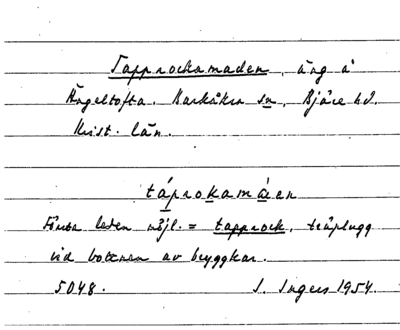 Tapprockamaden, äng å
Ängeltofta. Barkåkra sn, Bjäre hd.
Krist. län.
táprokamáen
Första leden möjl. = tapprock, träplugg
vid bottnen av bryggkar.
5048. I. Ingers 1954.